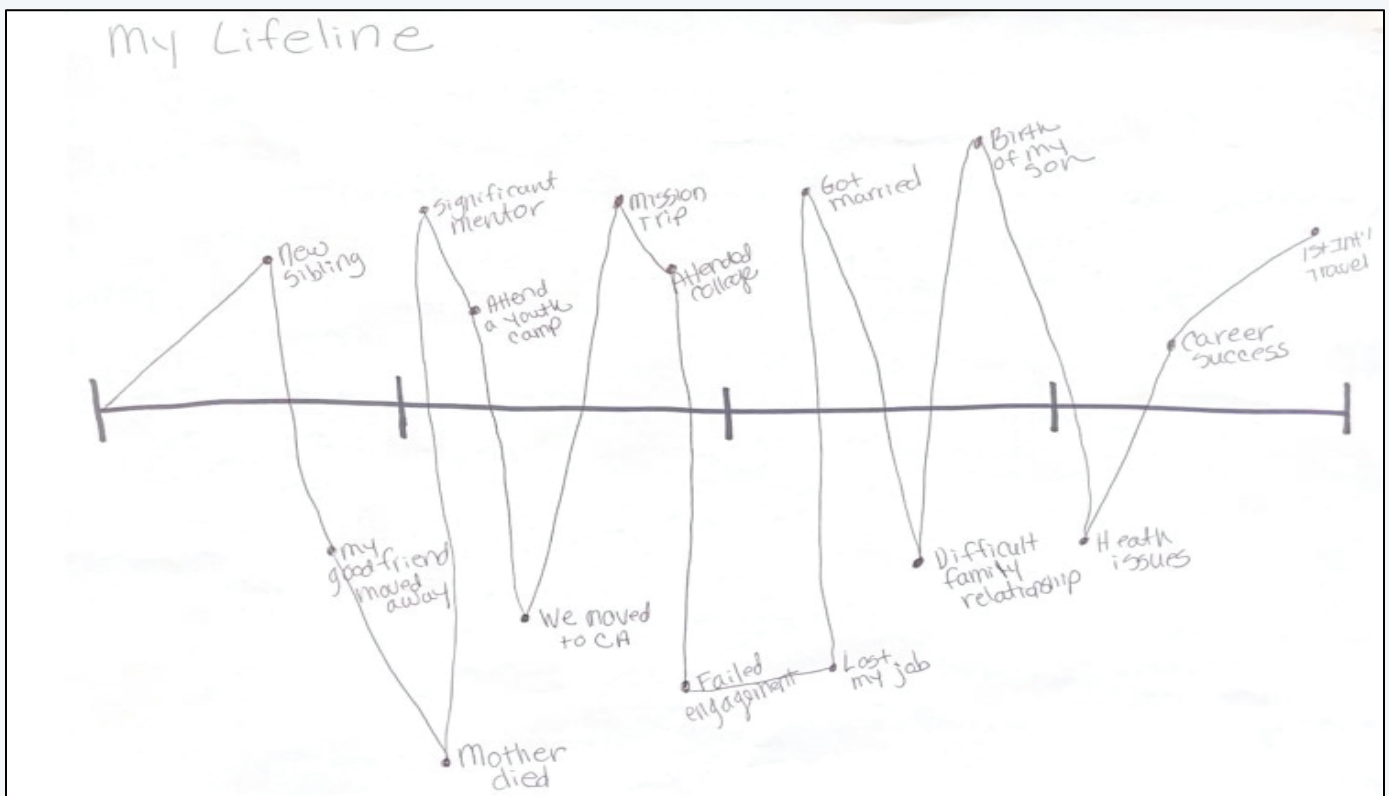 My Lifeline
New
sibling
my
good friend
moved
away
Mother
died
Significant
mentor
Attend
a youth
camp
We moved
to CA
Mission
Trip
Attended
college
Failed
engagement
Lost
my job
Got
married
Difficult
family
relationship
Birth
of my
son
Heath
issues
Career
success
1st Int'l
Travel